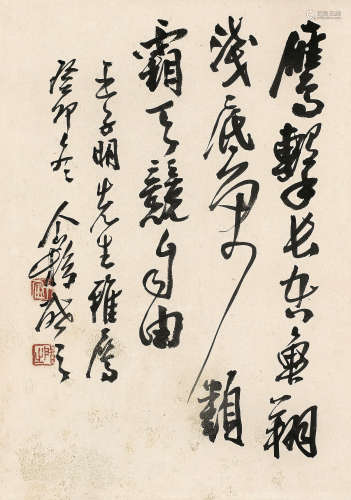 鷹擊长空魚翔
淺底万類
霜天競自由
子明先生雅屬
癸卯冬